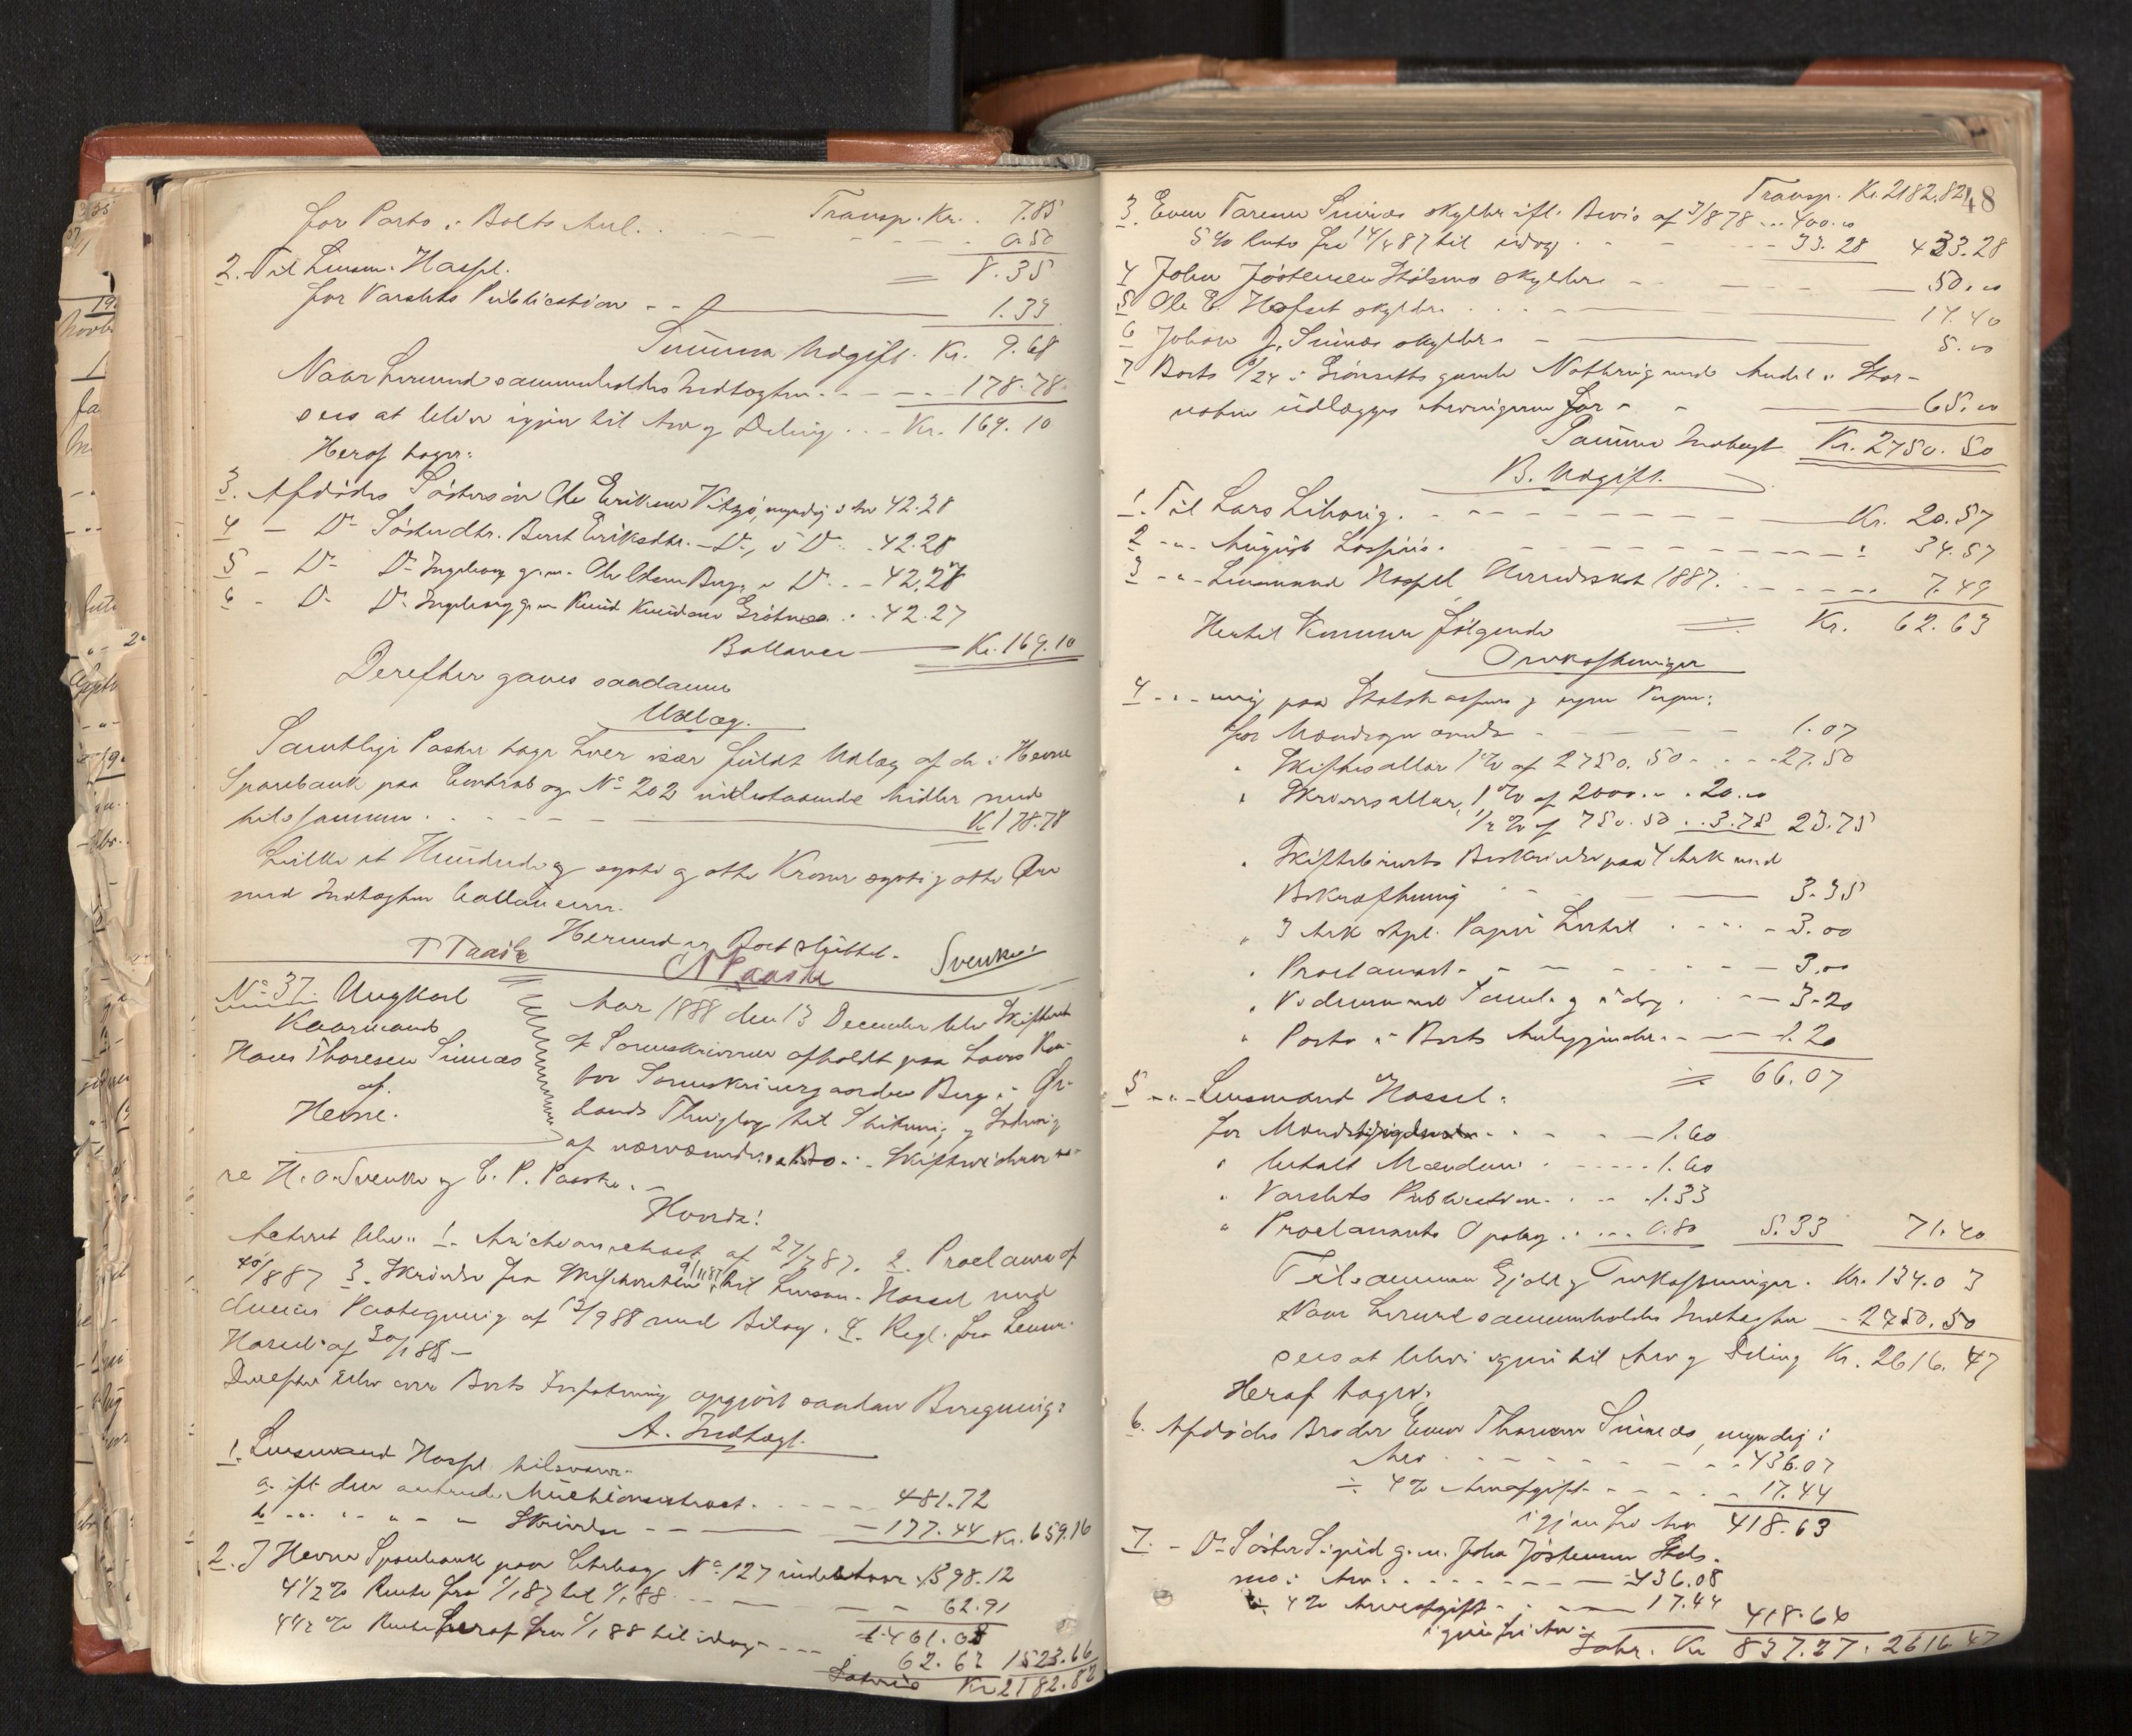 Transp. Kr. 7.85
for Porto i Boets Anl. 0.50
2. Til Lensm. Hassel. = 8.35
for Varslets Publication 1.33
Summa Udgift. Kr. 9.68
Naar hermed sammenholdes Indtægten 178.78
sees at blive igjen til Arv og Deling Kr. 169.10
Heraf tager:
3. Afdødes Søstersøn Ole Eriksen myndig i Arv 42.28
4 - Do Søsterdtr. Berit Eriksdtr. - Do, i Do 42.28
5 - Do Do Ingeborg g. m. Ole Olsen Berg i Do 42.27
6 - Do Do Ingeborg g. m. Knud Knudsen 42.27
Ballance Kr. 169.10
Derefter gaves saadanne
Udlæg.
Samtlige Poster tager hver især fuldt Udlæg af de i Hevne
Sparebank paa Contrabog No 202 indestaaende Midler med
tilsammen Kr 178.78
hvilke et Hundrede og sytti og otte Kroner sytti og otte Øre
med Indtægten ballancerer.
Hermed er Boet sluttet.
Svenke
No 37. Ungkarl
Hans Thoresen Sinnæs
af
Hevne.
Aar 1888 den 13 December blev Skifteret
af Sorenskriveren afholdt paa hans Kon-
tor Sorenskrivergaarden Berg i Ør-
lands Thinglag til Slutning og Lodning
af nærværende Bo. - Skiftevidner va-
re H. O. Svenke og C. P. Paaske. -
Hvorda:
Acteret blev: 1. Auctionsextract af 27/7 87. 2. Proclama af
/8 87 3. Skrivelse fra Skifteretten 9/11 87 til Lensm. Hassel med
dennes Paategning af 12/9 88 med Bilag. 4. Regl. fra Lensm.
Hassel af
Derefter blev over Boets Forfatning opgjort saadan Beregning:
A. Indtægt.
1. Lensmand Hassel tilsvarer
a. ift. den anførte Auctionsextract. 481.72
b " " " Skrivelse 177.44 Kr. 659.16
2. I Hevne Sparebank paa Contrabog No 127 indestaar 1398.12
4 1/2 % Rente fra 1/1 87 til 1/1 88 62.91
1461.03
4 1/2 % Rente heraf fra 1/1 88 til idag 62.63 1523.66
Latus Kr 2182.82
48
Transp. Kr. 2182.82
3. Even Taresen Sinnæs skylder ifl. Bevis af 3/8 78 400.00
5 % Rente fra 14/4 87 til idag 33.28 433.28
4 John Jøstensen Stolsmo skylder 50.00
5 Ole E. Hofset skylder 14.40
6 Johan J. Sinnæs skylder 5.00
7 Boets 6/24 i gamle med Andel i Stor-
noten udlægges Arvingerne for 65.00
Summa Indtægt Kr. 2750.50
B. Udgift.
1. Til Lars Lihovig. Kr. 20.57
2 - " - August 34.57
3 - " - Lensmand Hassel, Herredsskat 1887. 7.49
= Kr. 62.63
Hertil kommer følgende
Omkostninger
4 - " - mig paa Statskassens og egne Vegne:
for 1.07
" Skiftesallar 1 % af 2750.50 27.50
" Skriversallar, 1 % af 2000.00 20.00
1/2 % af 750.50 3.75 23.75
" Skiftebrevets Beskrivelse paa 4 Ark med
Bekræftning 3.35
" 3 Ark stpl. Papir hertil 3.00
" Proclamaet 3.00
" Vidnerne ved Saml. og idag 3.20
" Porto i Boets Anliggender 1.20
= 66.07
5 - " - Lensmand Hassel:
for 1.60
" betalt Mændene 1.60
" Varslets Publication 1.33
" Proclamaets Opslag 0.80 5.33 71.40
Tilsammen Gjæld og Omkostninger. Kr. 134.03
Naar hermed sammenholdes Indtægten 2750.50
sees at blive igjen til Arv og Deling Kr. 2616.47
Heraf tager:
6. Afdødes Broder Even Thoresen Sinnæs, myndig:
Arv 436.07
÷ 4 % Arveafgift 17.44
igjen fri Arv 418.63
7. - Do Søster Sigrid g. m. John Jøstensen Stols-
mo: Arv 436.08
÷ 4 % Arveafgift 17.44 418.64
igjen fri Arv
Latr. Kr 837.27. 2616.47